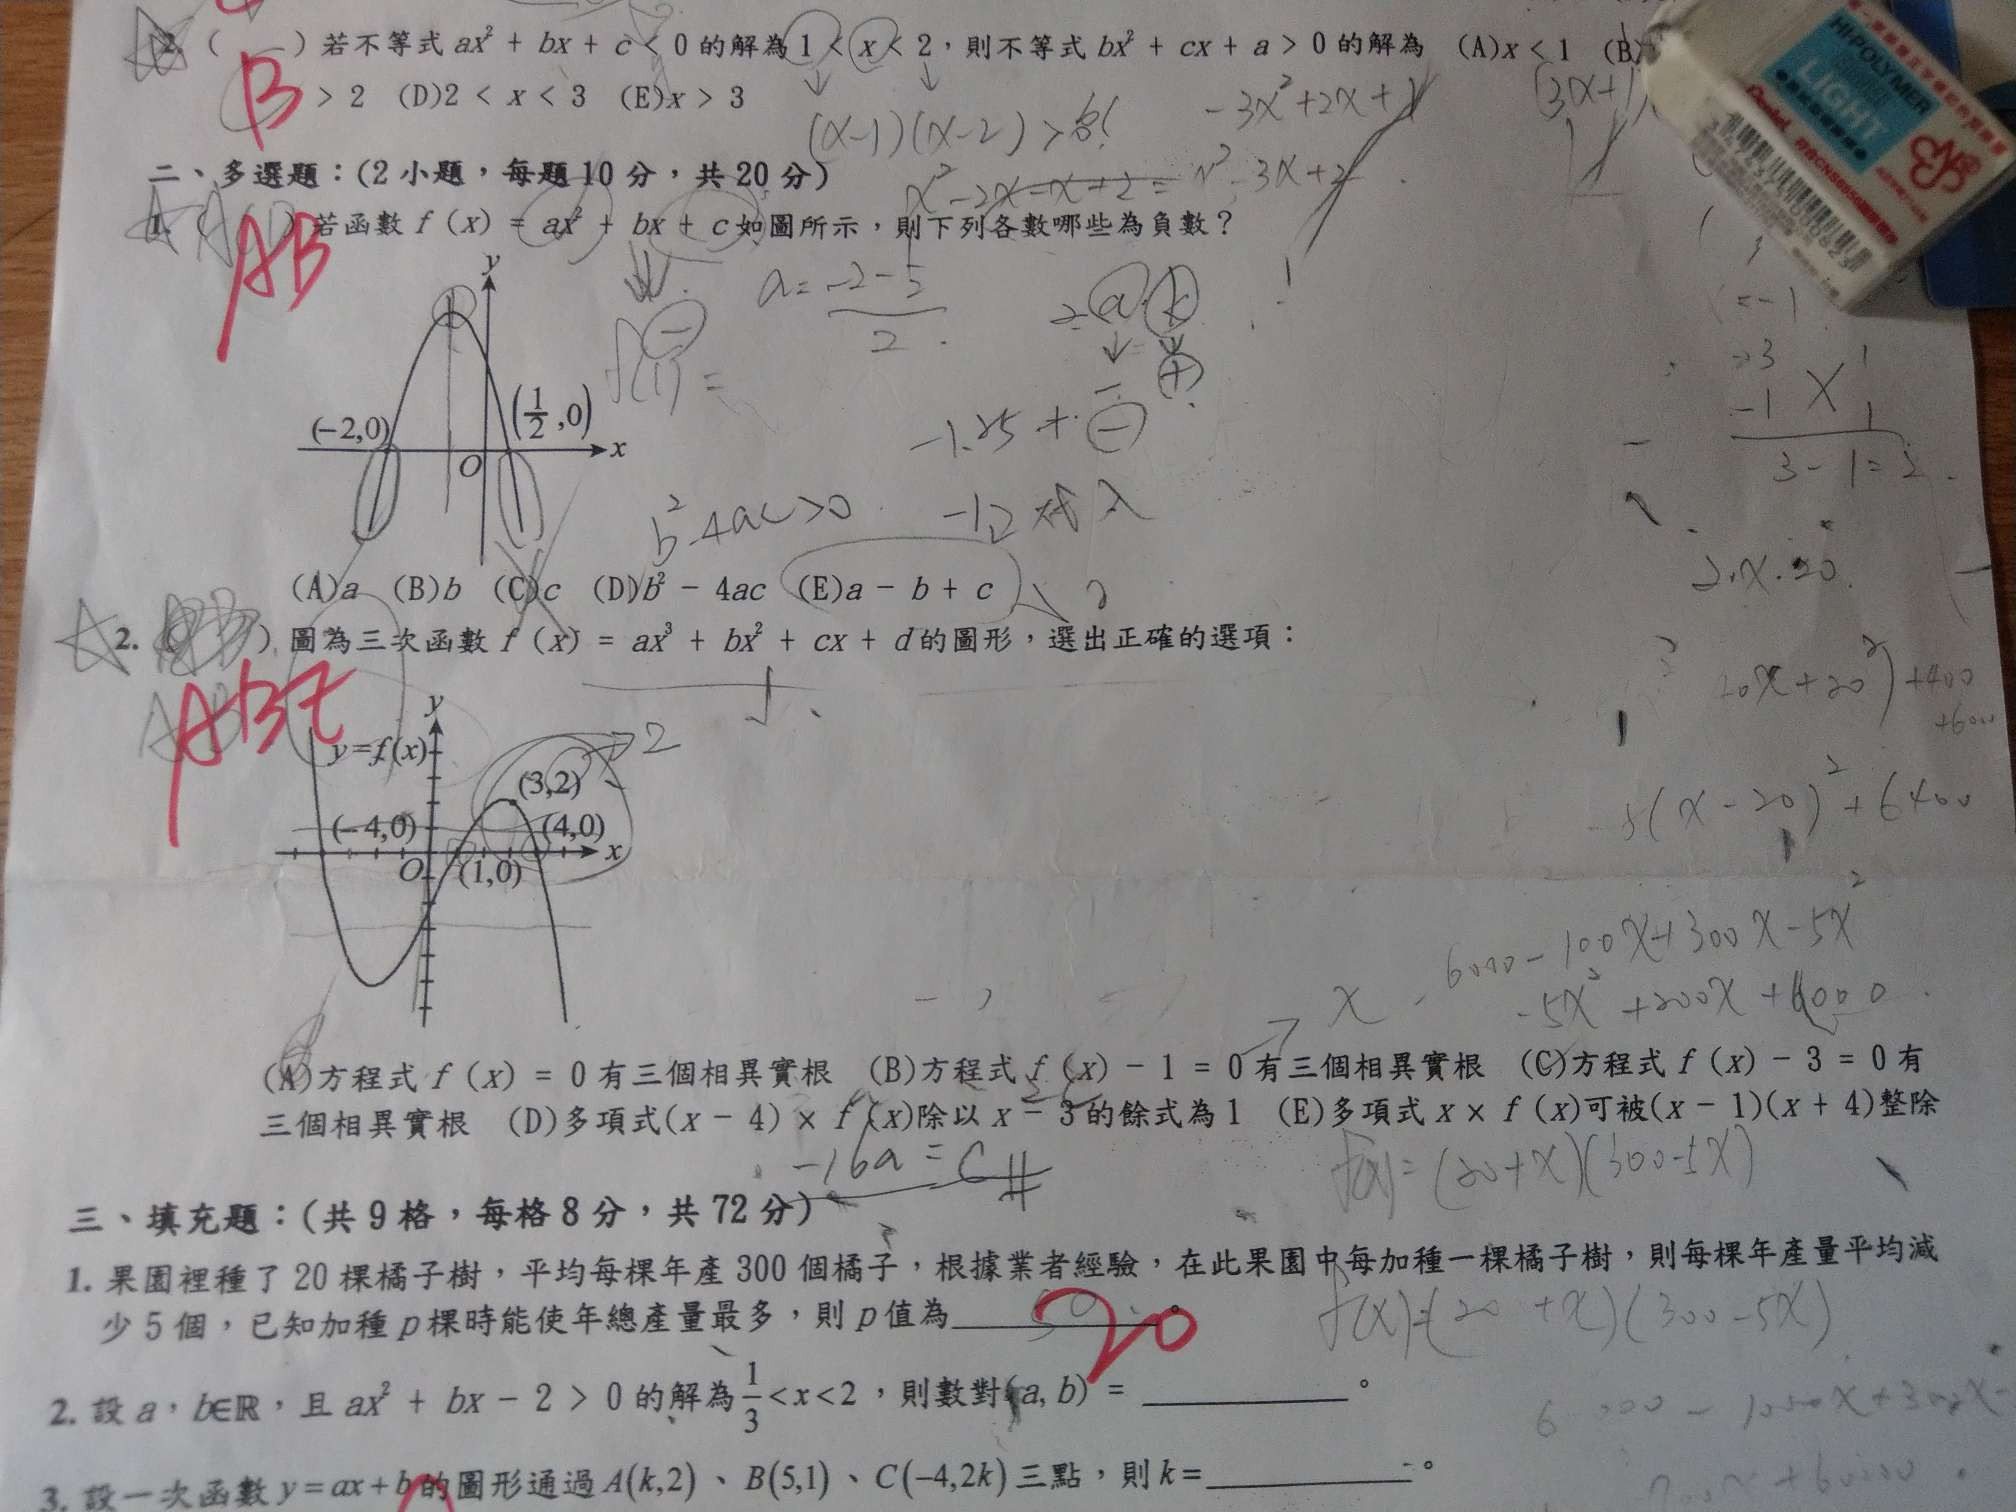 2. ( ) 若不等式 ax² + bx + c < 0 的解為 1 < x < 2，則不等式 bx² + cx + a > 0 的解為 (A)x < 1 (B)
B
> 2 (D)2 < x < 3 (E)x > 3
(x-1)(x-2) >
-3x²+2x+1
(3x+1)
HI-POLYMER
LIGHT
Pentel
二、多選題：(2 小題，每題 10 分，共 20 分)
x²-2x-x+2 = x²-3x+2
1. ) 若函數 f (x) = ax² + bx + c 如圖所示，則下列各數哪些為負數？
AB
y
a = -2-5
2
(-2,0)
(1/2 ,0)
O
x
-1.25 +
3 - 1 = 2
b²-4ac>0
(A)a (B)b (C)c (D)b² - 4ac (E)a - b + c
2. ) 圖為三次函數 f (x) = ax³ + bx² + cx + d 的圖形，選出正確的選項：
ABE
y
y=f(x)
2
(3,2)
(-4,0)
(4,0)
O
(1,0)
x
+400
-5(x-20)²+6400
6000-100x+300x-5x²
-5x²+200x+6000
(A)方程式 f (x) = 0 有三個相異實根 (B)方程式 f (x) - 1 = 0 有三個相異實根 (C)方程式 f (x) - 3 = 0 有
三個相異實根 (D)多項式(x - 4) × f (x)除以 x - 3 的餘式為 1 (E)多項式 x × f (x)可被(x - 1)(x + 4)整除
-16a = C
f(x)=(20+x)(300-5x)
三、填充題：(共 9 格，每格 8 分，共 72 分)
1. 果園裡種了 20 棵橘子樹，平均每棵年產 300 個橘子，根據業者經驗，在此果園中每加種一棵橘子樹，則每棵年產量平均減
少 5 個，已知加種 p 棵時能使年總產量最多，則 p 值為 20 。
f(x)=(20+x)(300-5x)
2. 設 a，b∈ℝ，且 ax² + bx - 2 > 0 的解為 1/3 < x < 2，則數對(a, b) = ______。
3. 設一次函數 y = ax + b 的圖形通過 A(k,2)、B(5,1)、C(-4,2k) 三點，則 k = ______。